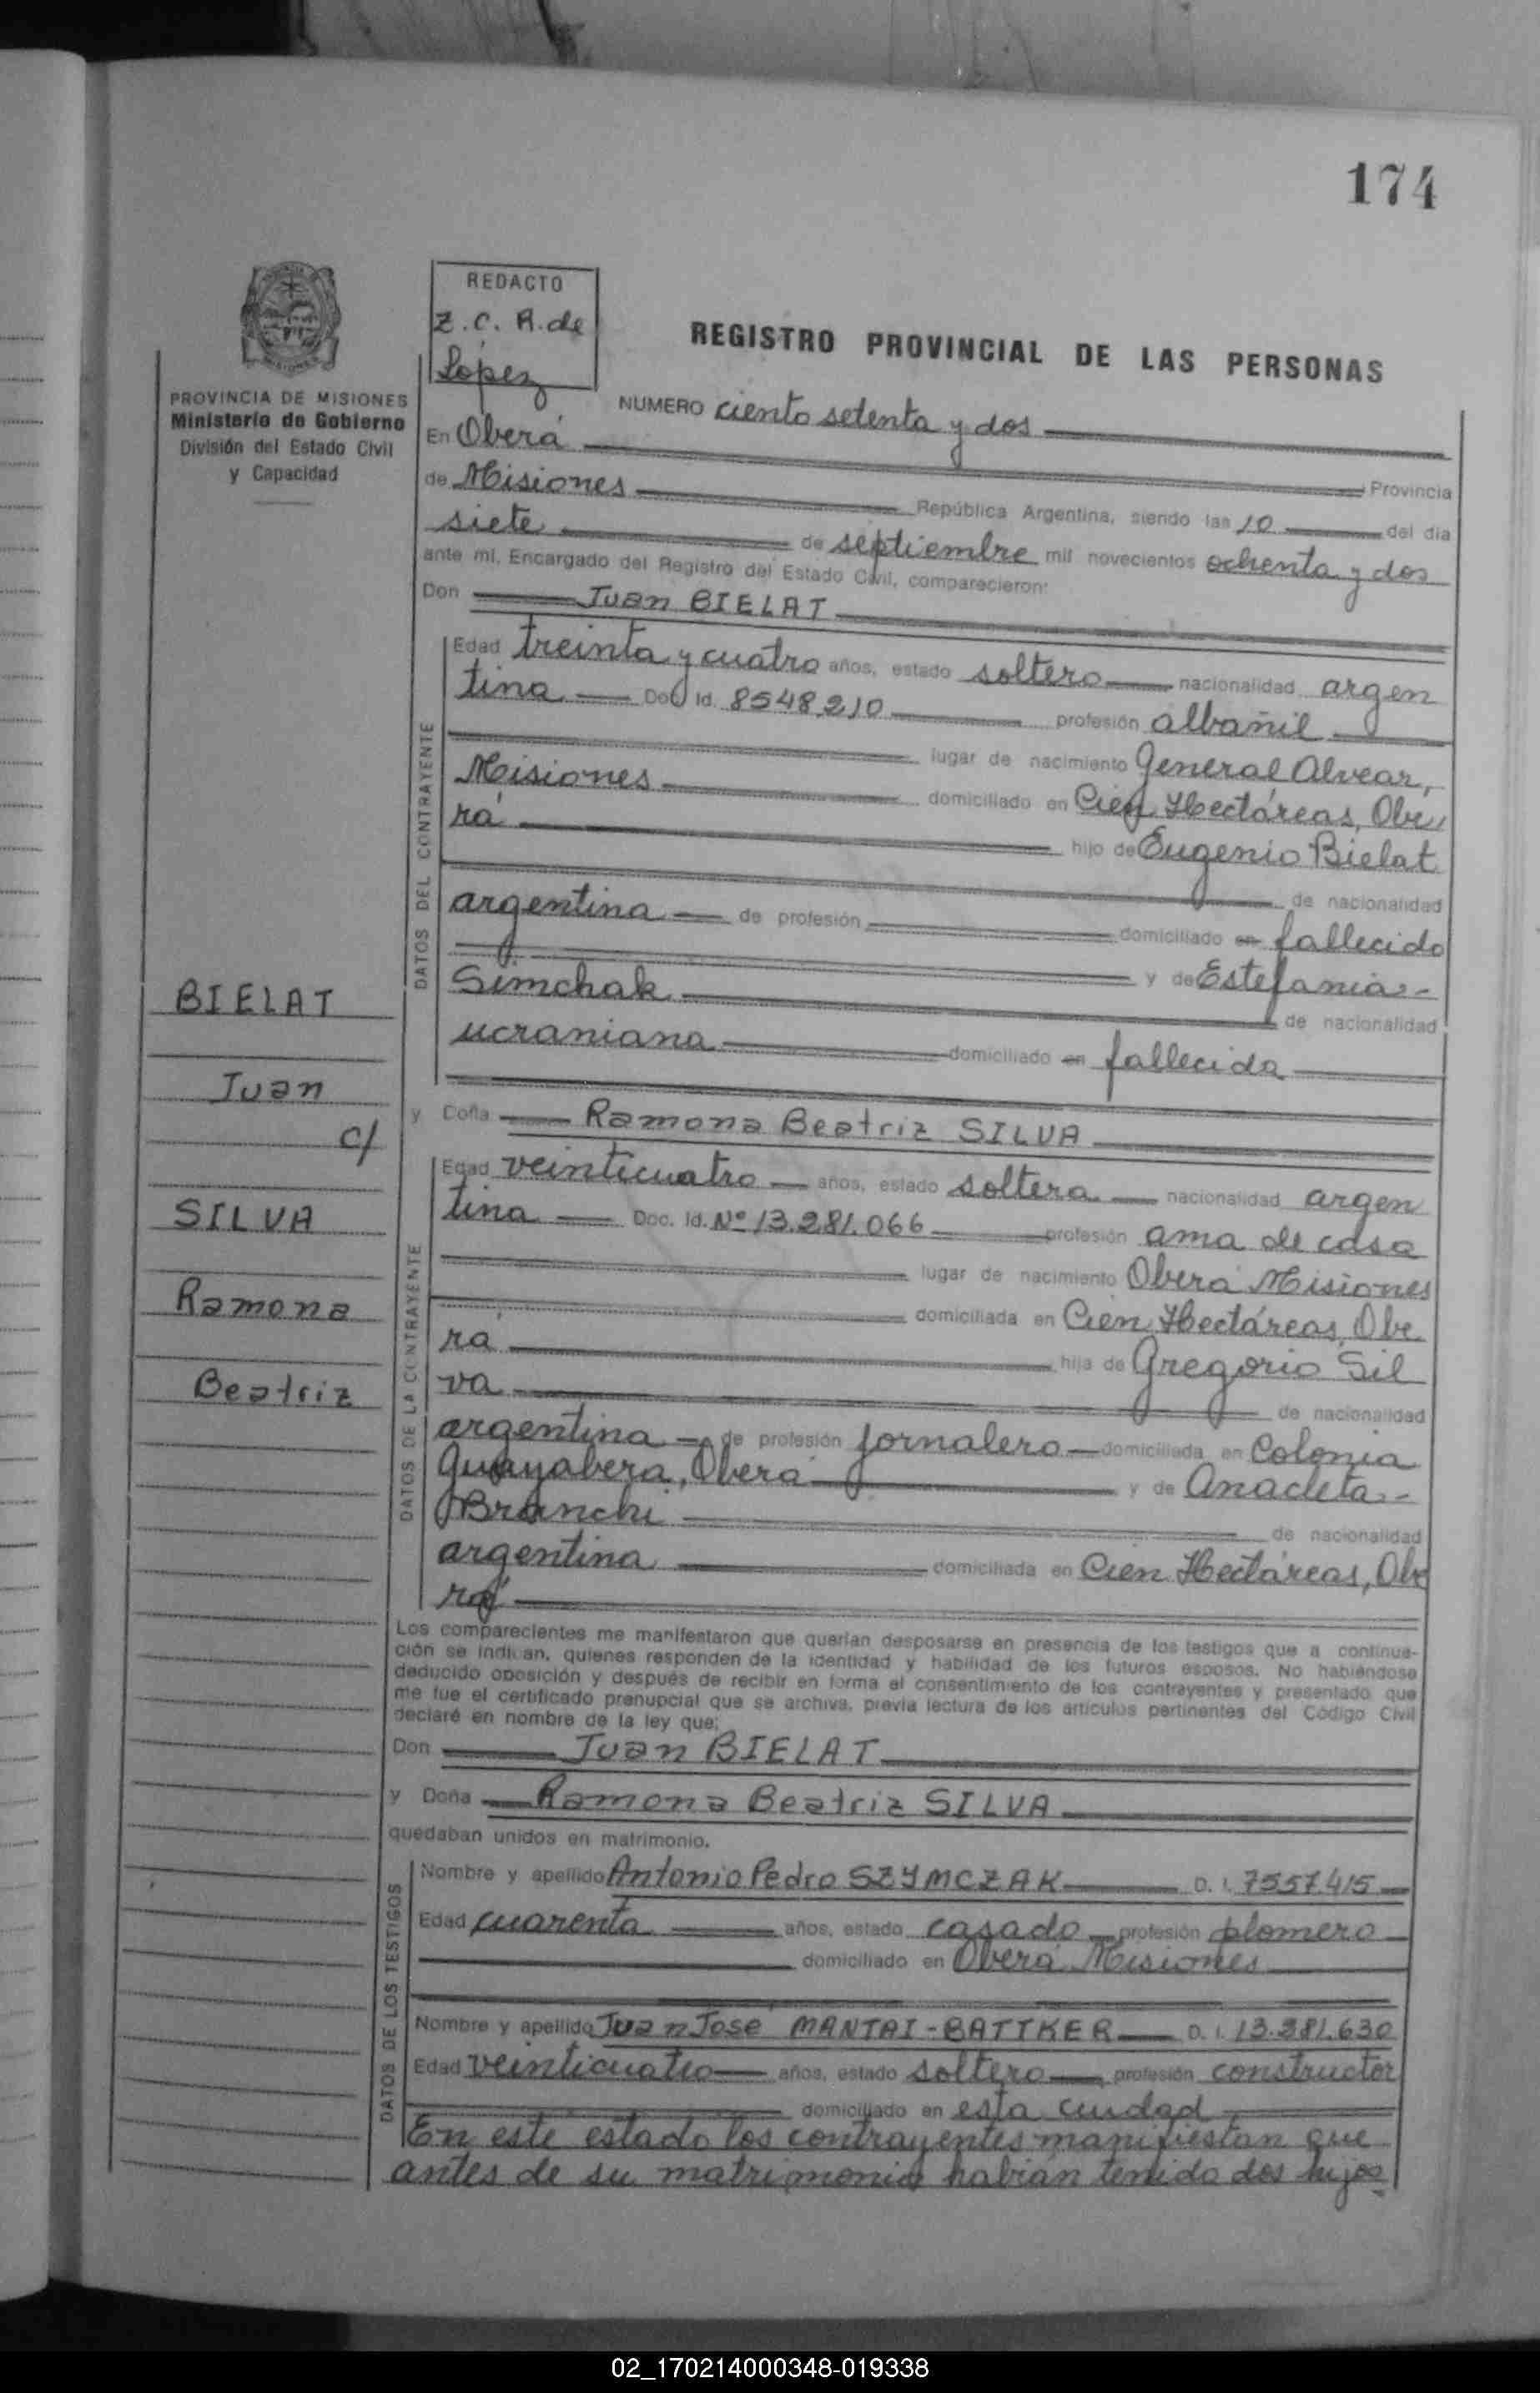 174
REDACTO
Z. C. R. de
Lopez
REGISTRO PROVINCIAL DE LAS PERSONAS
PROVINCIA DE MISIONES
Ministerio de Gobierno
División del Estado Civil
y Capacidad
NUMERO ciento setenta y dos
En Oberá Provincia
de Misiones República Argentina, siendo las 10 del día
siete de septiembre mil novecientos ochenta y dos
ante mí, Encargado del Registro del Estado Civil, comparecieron:
Don Juan BIELAT
DATOS DEL CONTRAYENTE
Edad treinta y cuatro años, estado soltero nacionalidad argen
tina Doc Id. 8548210 profesión albañil
lugar de nacimiento General Alvear,
Misiones domiciliado en Cien Hectáreas, Obe
rá hijo de Eugenio Bielat
de nacionalidad
argentina de profesión domiciliado en fallecido
y de Estefania
Simchak de nacionalidad
ucraniana domiciliado en fallecida
y Doña Ramona Beatriz SILVA
DATOS DE LA CONTRAYENTE
Edad veinticuatro años, estado soltera nacionalidad argen
tina Doc. Id. Nº 13.281.066 profesión ama de casa
lugar de nacimiento Oberá Misiones
domiciliada en Cien Hectáreas, Obe
rá hija de Gregorio Sil
va de nacionalidad
argentina de profesión jornalero domiciliada en Colonia
Guayabera, Oberá y de Anacleta
Branchi de nacionalidad
argentina domiciliada en Cien Hectáreas, Obe
rá
BIELAT
Juan
c/
SILVA
Ramona
Beatriz
Los comparecientes me manifestaron que querían desposarse en presencia de los testigos que a continua-
ción se indican, quienes responden de la identidad y habilidad de los futuros esposos. No habiéndose
deducido oposición y después de recibir en forma el consentimiento de los contrayentes y presentado que
me fue el certificado prenupcial que se archiva, previa lectura de los artículos pertinentes del Código Civil
declaré en nombre de la ley que:
Don Juan BIELAT
y Doña Ramona Beatriz SILVA
quedaban unidos en matrimonio.
DATOS DE LOS TESTIGOS
Nombre y apellido Antonio Pedro SZYMCZAK D. I. 7557415
Edad cuarenta años, estado casado profesión plomero
domiciliado en Oberá Misiones
Nombre y apellido Juan Jose MANTAI-BATTKER D. I. 13.281.630
Edad veinticuatro años, estado soltero profesión constructor
domiciliado en esta ciudad
En este estado los contrayentes manifiestan que
antes de su matrimonio habían tenido dos hijos
02_170214000348-019338